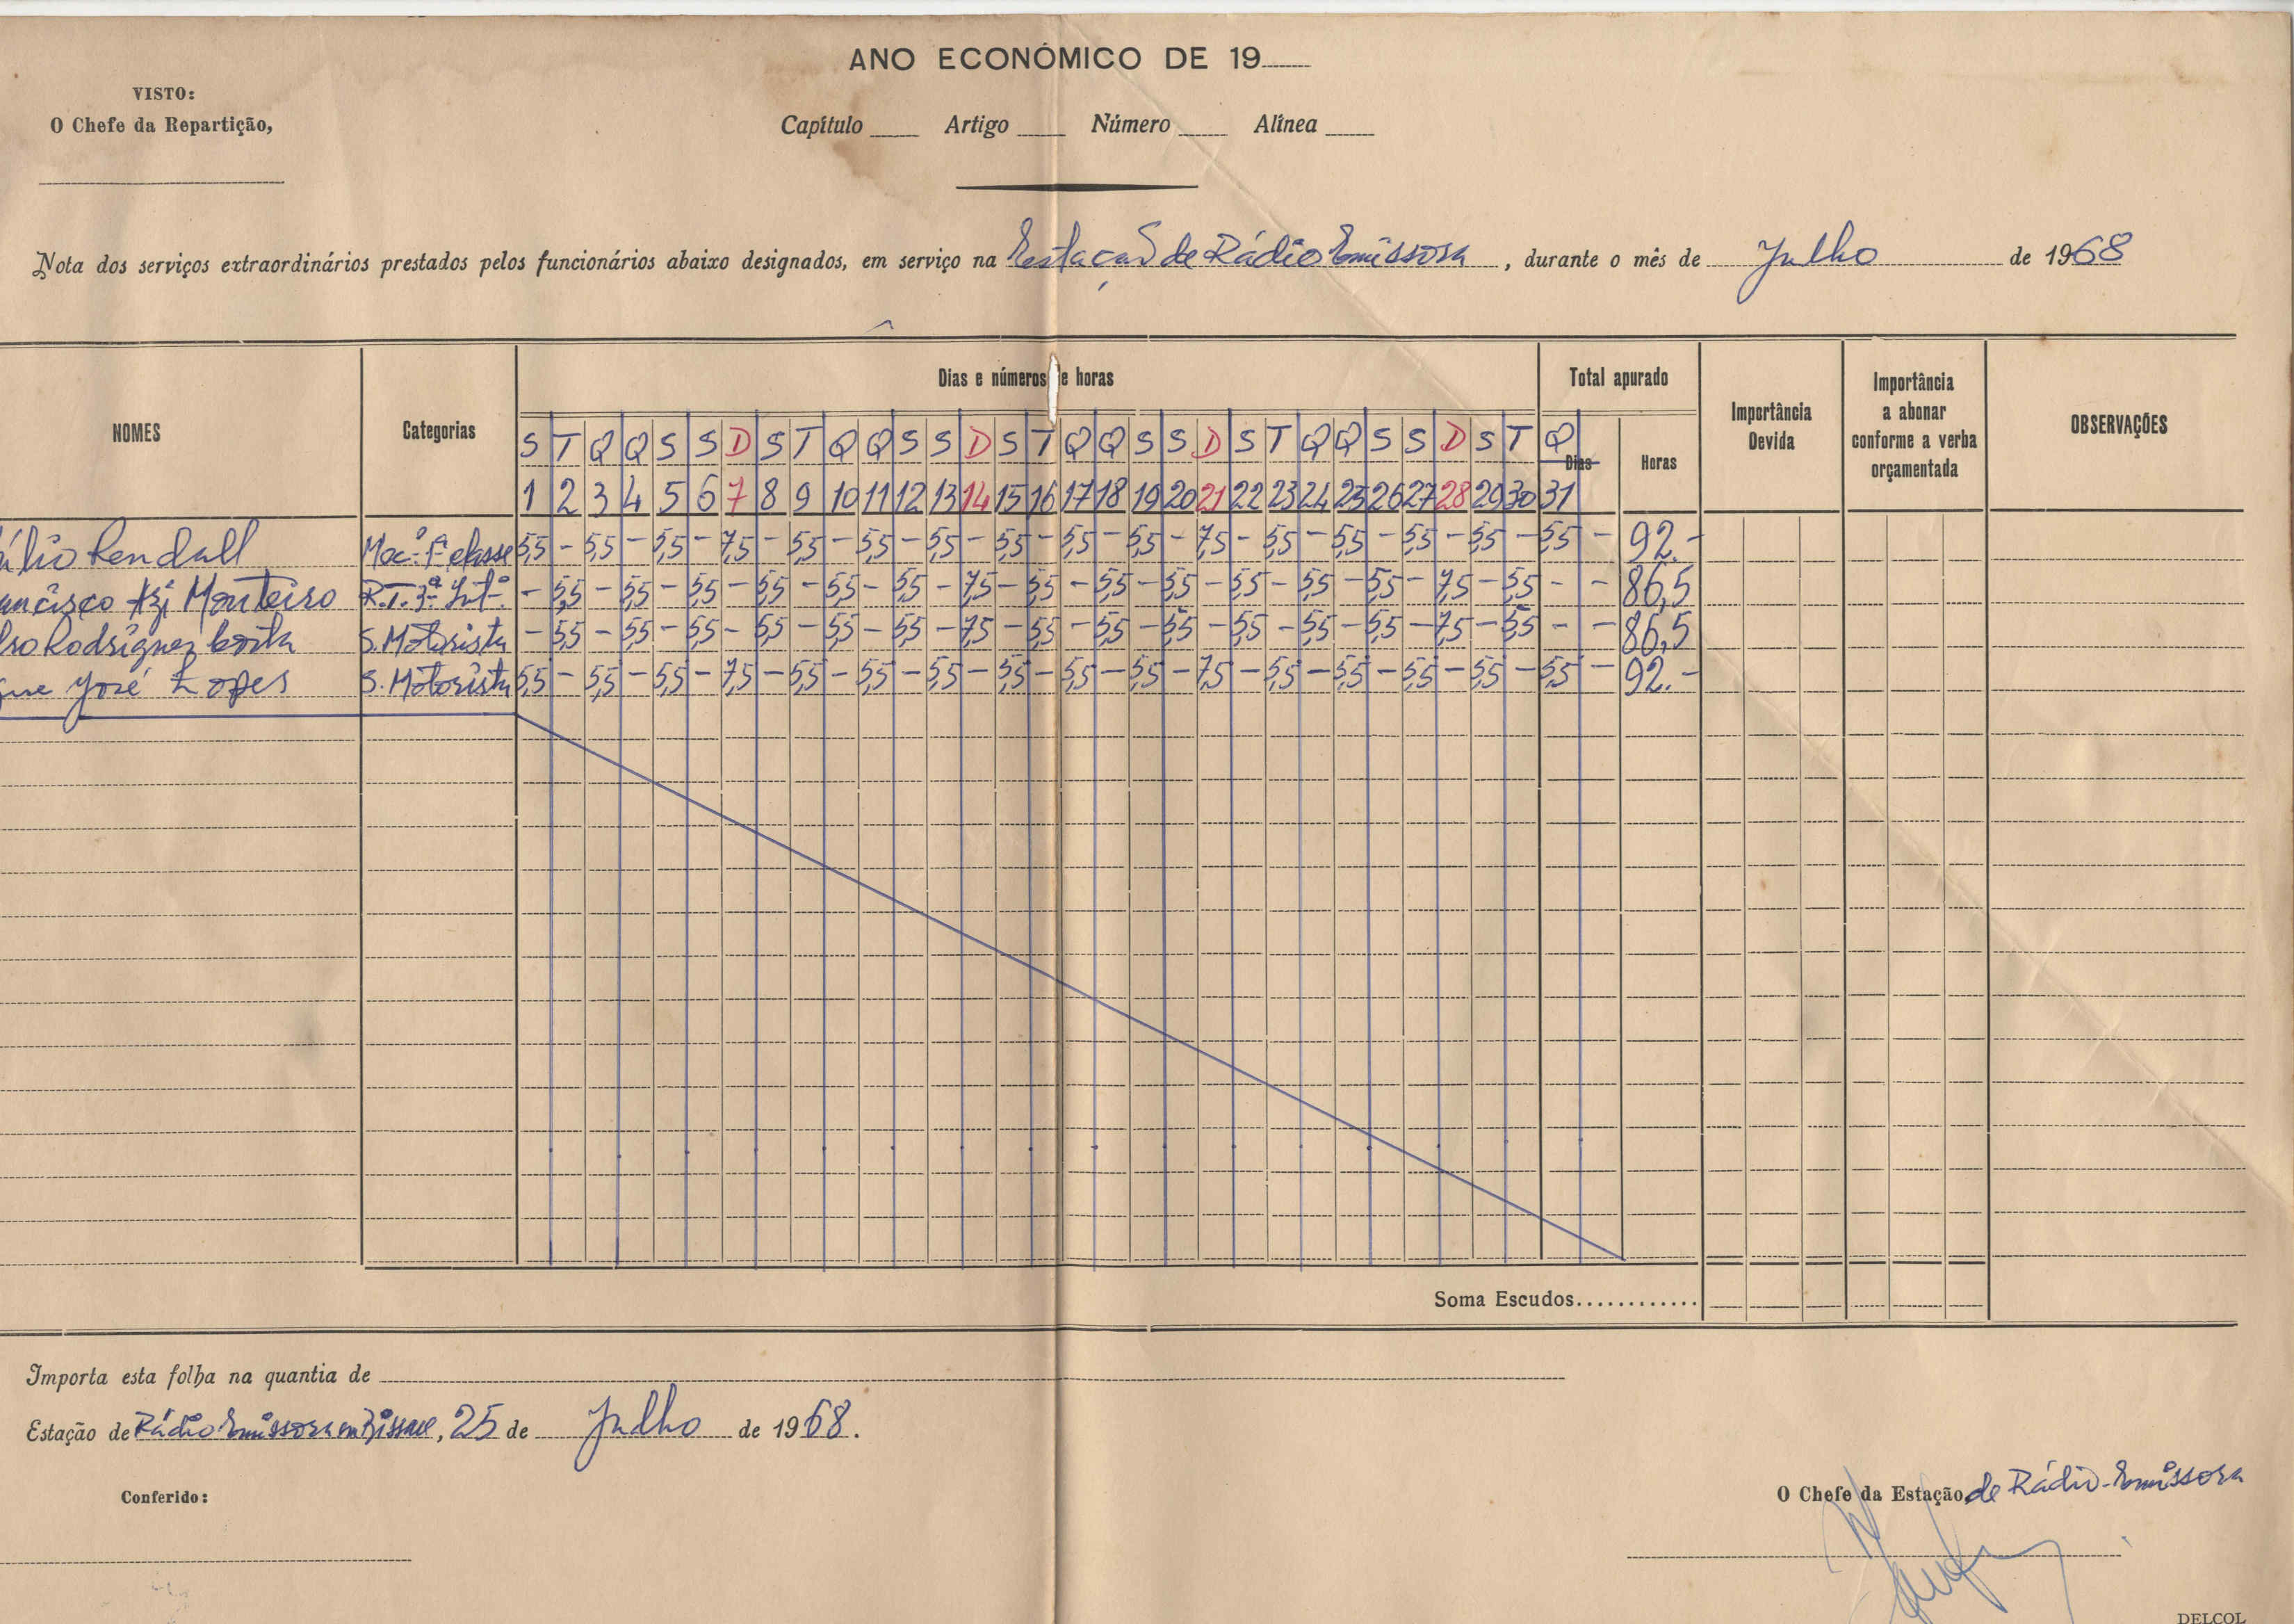 ANO ECONÓMICO DE 19
VISTO:
O Chefe da Repartição,
Capítulo Artigo Número Alínea
Nota dos serviços extraordinários prestados pelos funcionários abaixo designados, em serviço na Estação de Rádio Emissora, durante o mês de Julho de 1968
NOMES Categorias Dias e números e horas Total apurado Importância Devida Importância a abonar conforme a verba orçamentada OBSERVAÇÕES
S T Q Q S S D S T Q Q S S D S T Q Q S S D S T Q Q S S D S T Q Dias Horas
1 2 3 4 5 6 7 8 9 10 11 12 13 14 15 16 17 18 19 20 21 22 23 24 25 26 27 28 29 30 31
úlio Rendall 5,5 - 5,5 - 5,5 - 7,5 - 5,5 - 5,5 - 5,5 - 5,5 - 5,5 - 5,5 - 7,5 - 5,5 - 5,5 - 5,5 - 5,5 - 5,5 - 92.-
ancisco Monteiro R.T. 3ª - 5,5 - 5,5 - 5,5 - 5,5 - 5,5 - 5,5 - 7,5 - 5,5 - 5,5 - 5,5 - 5,5 - 5,5 - 5,5 - 7,5 - 5,5 - - 86,5
Rodrigues S. Motorista - 5,5 - 5,5 - 5,5 - 5,5 - 5,5 - 5,5 - 7,5 - 5,5 - 5,5 - 5,5 - 5,5 - 5,5 - 5,5 - 7,5 - 5,5 - - 86,5
que José Lopes S. Motorista 5,5 - 5,5 - 5,5 - 7,5 - 5,5 - 5,5 - 5,5 - 5,5 - 5,5 - 5,5 - 7,5 - 5,5 - 5,5 - 5,5 - 5,5 - 5,5 - 92.-
Soma Escudos............
Importa esta folha na quantia de
Estação de Rádio Emissora em Bissau, 25 de Julho de 1968.
Conferido:
O Chefe da Estação de Rádio-Emissora
DELCOL